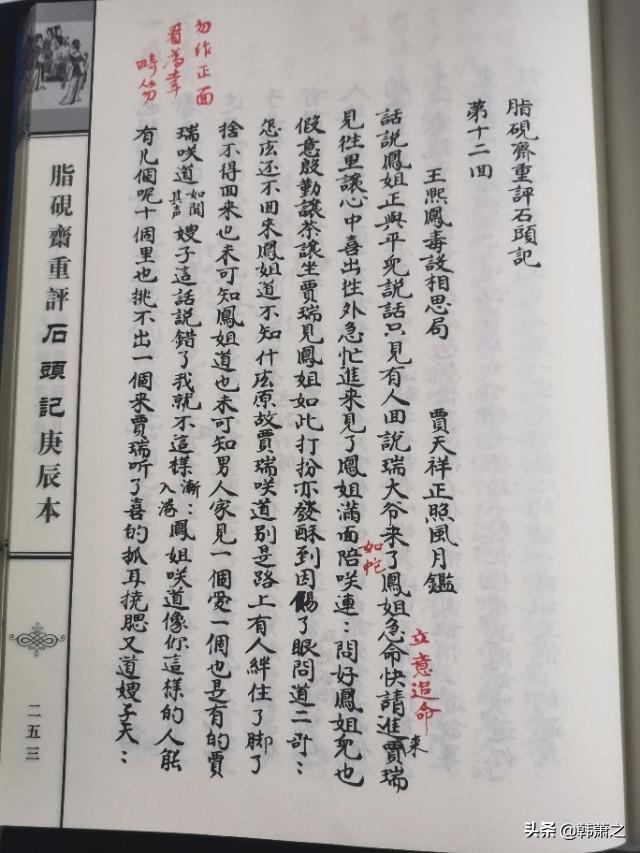 脂硯齋重評石頭記
第十二回
王熙鳳毒設相思局 賈天祥正照風月鑑
話說鳳姐正與平兒說話只見有人回說瑞大爷來了鳳姐急命快請進來賈瑞
立意追命
見徃里讓心中喜出徃外急忙進來見了鳳姐滿面陪咲連：問好鳳姐兒也
如蛇
假意殷勤讓茶讓坐賈瑞見鳳姐如此打扮亦發酥到因餳了眼問道二哥：
怎庅还不回來鳳姐道不知什庅原故賈瑞咲道别是路上有人絆住了脚了
捨不得回來也未可知鳳姐道也未可知男人家見一個愛一個也是有的賈
瑞咲道如聞其声嫂子這話說錯了我就不這樣漸漸入港：鳳姐咲道像你這樣的人能
有几個呢十個里也挑不出一個來賈瑞听了喜的抓耳撓腮又道嫂子天：
勿作正面
看為幸
畸笏
脂硯齋重評石頭記庚辰本
二五三
头条 @韩萧之